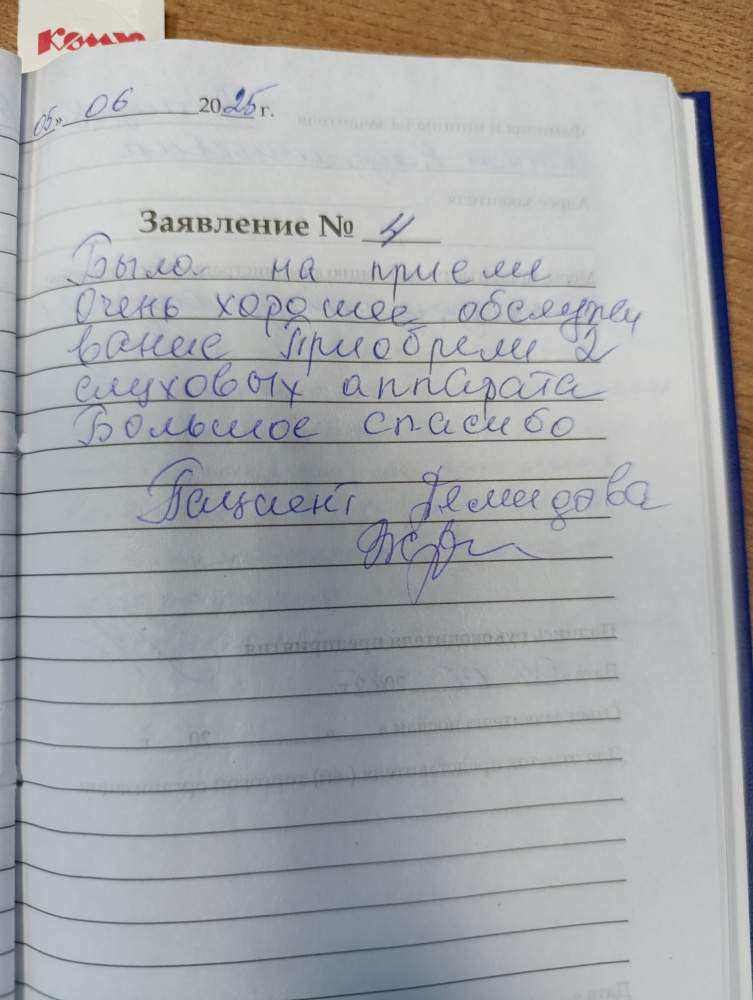 Комус
05» 06 2025 г.
Заявление № 4
Была на приеме
Очень хорошее обслужи
вание Приобрели 2
слуховых аппарата
Большое спасибо
Пациент Демидова